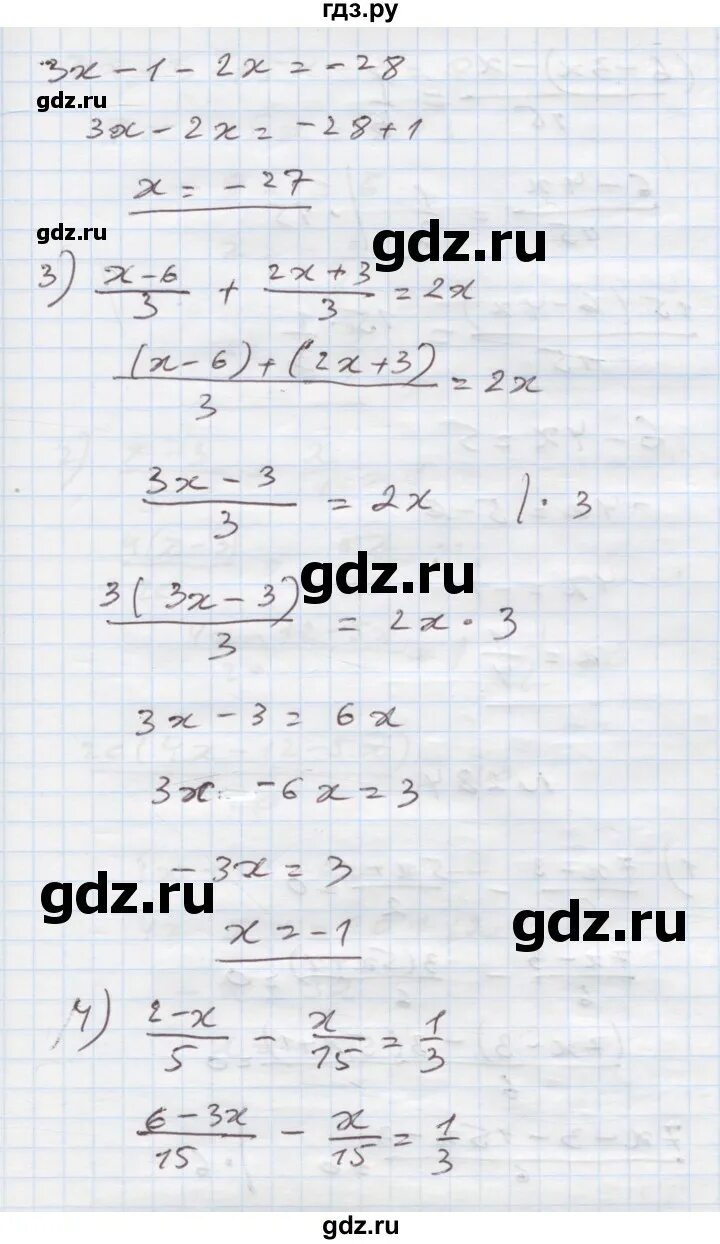 гдз.ру
3x - 1 - 2x = -28
gdz.ru
3x - 2x = -28 + 1
x = -27
gdz.ru
gdz.ru
3) (x-6)/3 + (2x+3)/3 = 2x
((x-6)+(2x+3))/3 = 2x
(3x-3)/3 = 2x |·3
gdz.ru
3(3x-3)/3 = 2x·3
3x - 3 = 6x
3x - 6x = 3
-3x = 3
gdz.ru
gdz.ru
x = -1
4) (2-x)/5 - x/15 = 1/3
(6-3x)/15 - x/15 = 1/3
gdz.ru